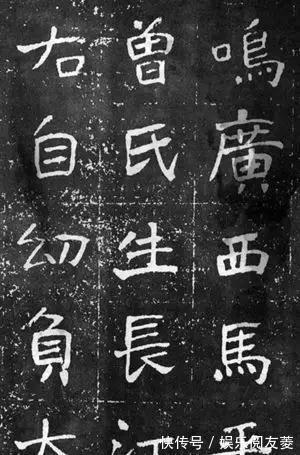 嗚廣西馬平
曾氏生長江
右自幼負大
快传号／娱乐阅友菱